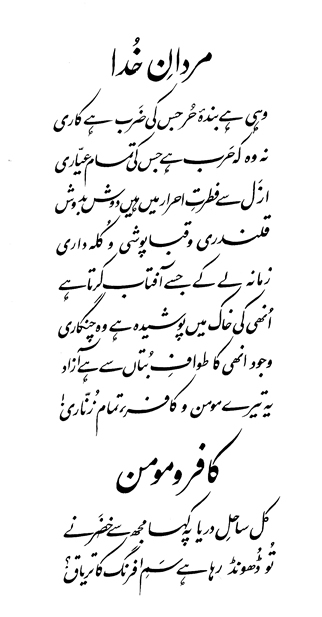 مردانِ خُدا
وہی ہے بندۂ حُر جس کی ضَرب ہے کاری
نہ وہ کہ حَرب ہے جس کی تمام عیّاری
ازَل سے فطرتِ احرار میں ہیں دوش بدوش
قلندری و قبا پوشی و کُلہ داری
زمانہ لے کے جسے آفتاب کرتا ہے
اُنھی کی خاک میں پوشیدہ ہے وہ چنگاری
وجود انھی کا طوافِ بُتاں سے ہے آزاد
یہ تیرے مومن و کافر، تمام زُنّاری!
کافر و مومن
کل ساحلِ دریا پہ کہا مجھ سے خضَر نے
تُو ڈھُونڈ رہا ہے سَمِ افرنگ کا تریاق؟